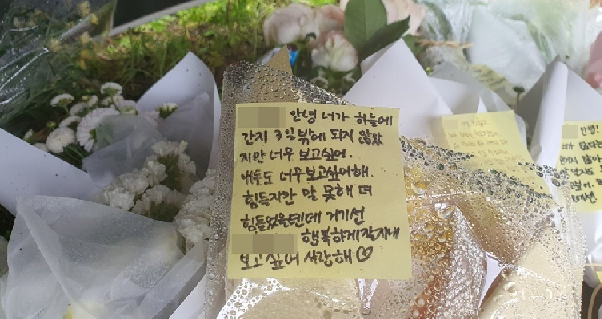 안녕 너가 하늘에
간지 3일밖에 되지 않았
지만 너무 보고싶어.
너무 보고싶어해.
힘들지만 말 못해 더
힘들었을텐데 거기선
행복하게 잘지내
보고싶어 사랑해♡
안녕!